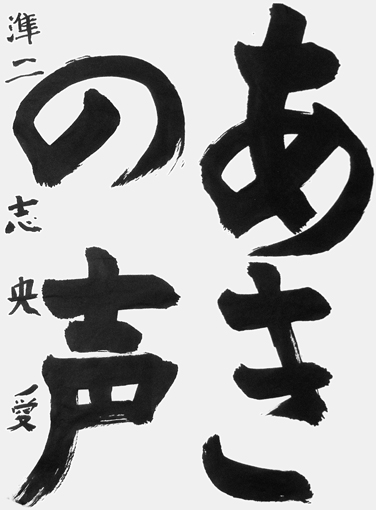 あき
の声
準二 志央愛